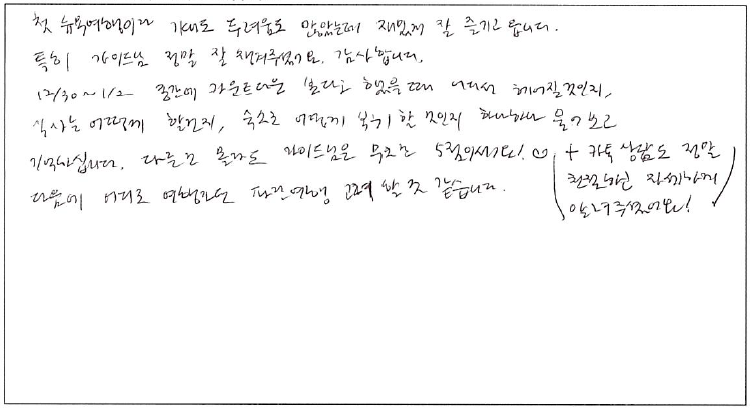 첫 뉴욕여행이라 기대도 두려움도 많았는데 재밌게 잘 즐기고 갑니다.
특히 가이드님 정말 잘 챙겨주셨어요. 감사합니다.
12/30~1/2 중간에 카운트다운 보다고 했을때 어디서 헤어질것인지,
식사는 어떻게 할건지, 숙소로 어떻게 복귀 할 것인지 하나하나 물어보고
기억하십니다. 다른건 몰라도 가이드님은 무조건 5점이세요! ♡
다음에 어디로 여행가든 여행 고려 할 것 같습니다.
+ 카톡상담도 정말
친절하고 자세하게
알려주셨어요!